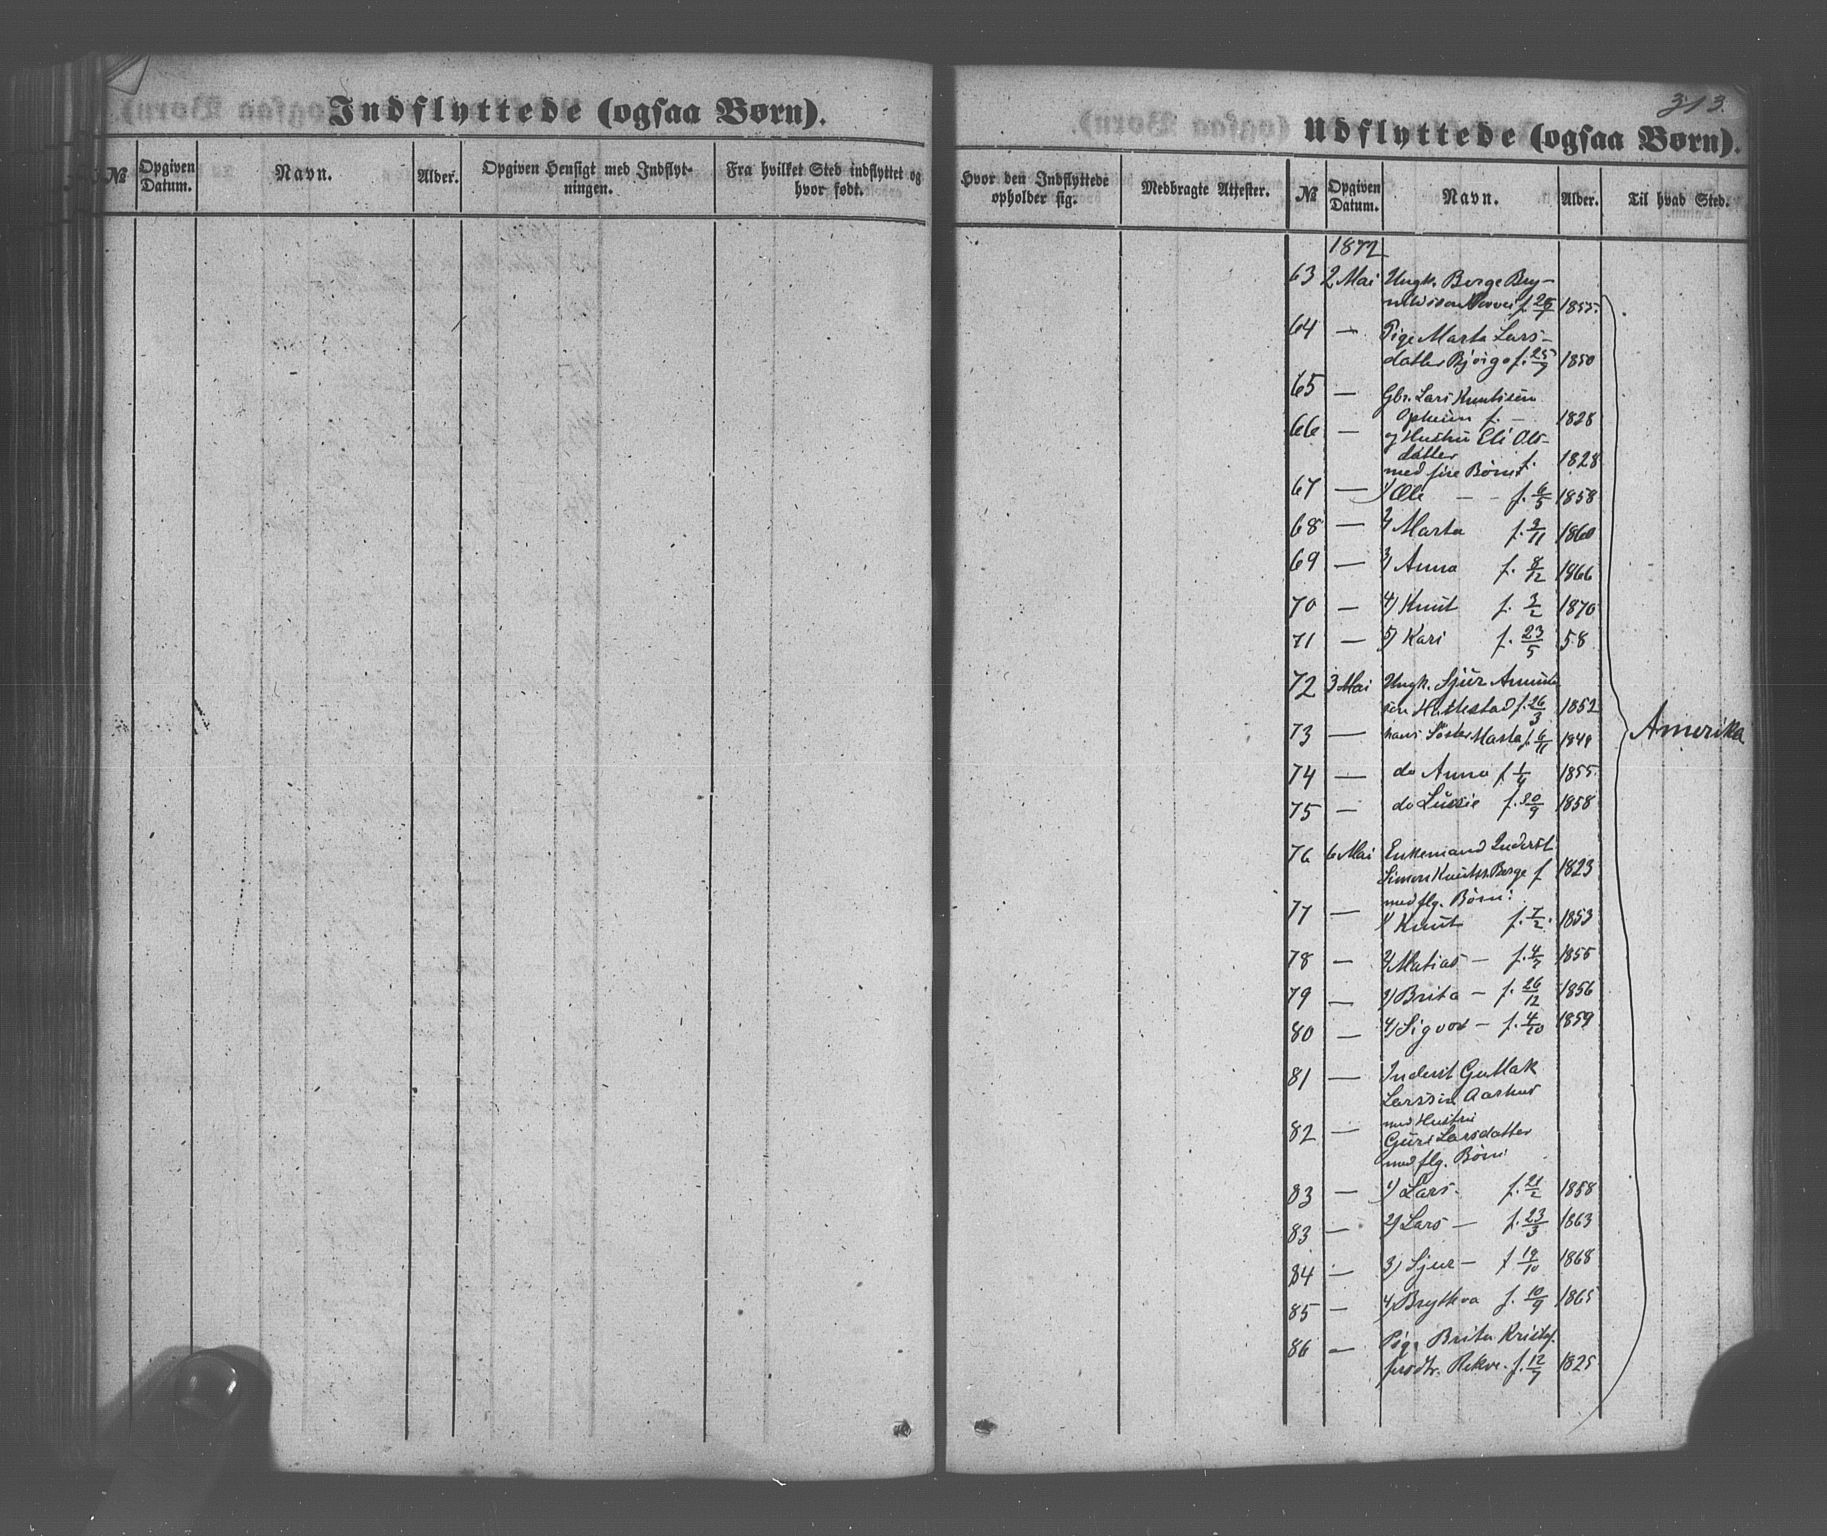 Indflyttede (ogsaa Børn).
№
Opgiven Datum.
Navn.
Alder.
Opgiven Hensigt med Indflyt-
ningen.
Fra hvilket Sted indflyttet og
hvor født.
313.
Udflyttede (ogsaa Børn).
Hvor den Indflyttede
opholder sig.
Medbragte Attester.
№
Opgiven Datum.
Navn.
Alder.
Til hvad Sted.
1872
63 2 Mai Ungk. Børge Bry-
f. 1855
64 — Pige Marta Lars-
datter Bjørgo f. 25/7 1850
65 — Gbr. Lars Knutssen
Opheim f. — 1828
66 — og Hustru Eli Ols-
datter f. 1828
med fire Børn:
67 — 1/ Ole — - f. 6/5 1858
68 — 2/ Marta f. 2/11 1860
69 — 3/ Anna f. 8/12 1866
70 — 4/ Knut f. 3/2 1870
71 — 5/ Kari f. 23/5 58
72 3 Mai Ungk. Sjur Amunds
sen Hellestad f. 26/3 1852
73 — hans Søster Marta f. 6/11 1849
74 — do Anna f 1/4 1855
75 — do Lussie f. 20/9 1858
Amerika
76 6 Mai Enkemand Inderst
Simon Knutss. Berge f 1823
med flg. Børn:
77 — 1/ Knut f. 7/2. 1853
78 — 2/ Matias — f. 4/7 1855
79 — 3/ Brita — f. 26/12 1856
80 — 4/ Sigvor — f. 4/10 1859
81 — Inderst Gullak
Larssen Aarhus
med Hustru
82 — Guri Larsdatter
med flg. Børn:
83 — 1/ Lars. f. 21/2 1858
83 — 2/ Lars — f. 23/3 1863
84 — 3/ Sjur — f 19/10 1868
85 — 4/ Brytteva f. 10/9 1865
86 — Pige Brita Kristof-
fersdtr. Rekve. f. 12/7 1825